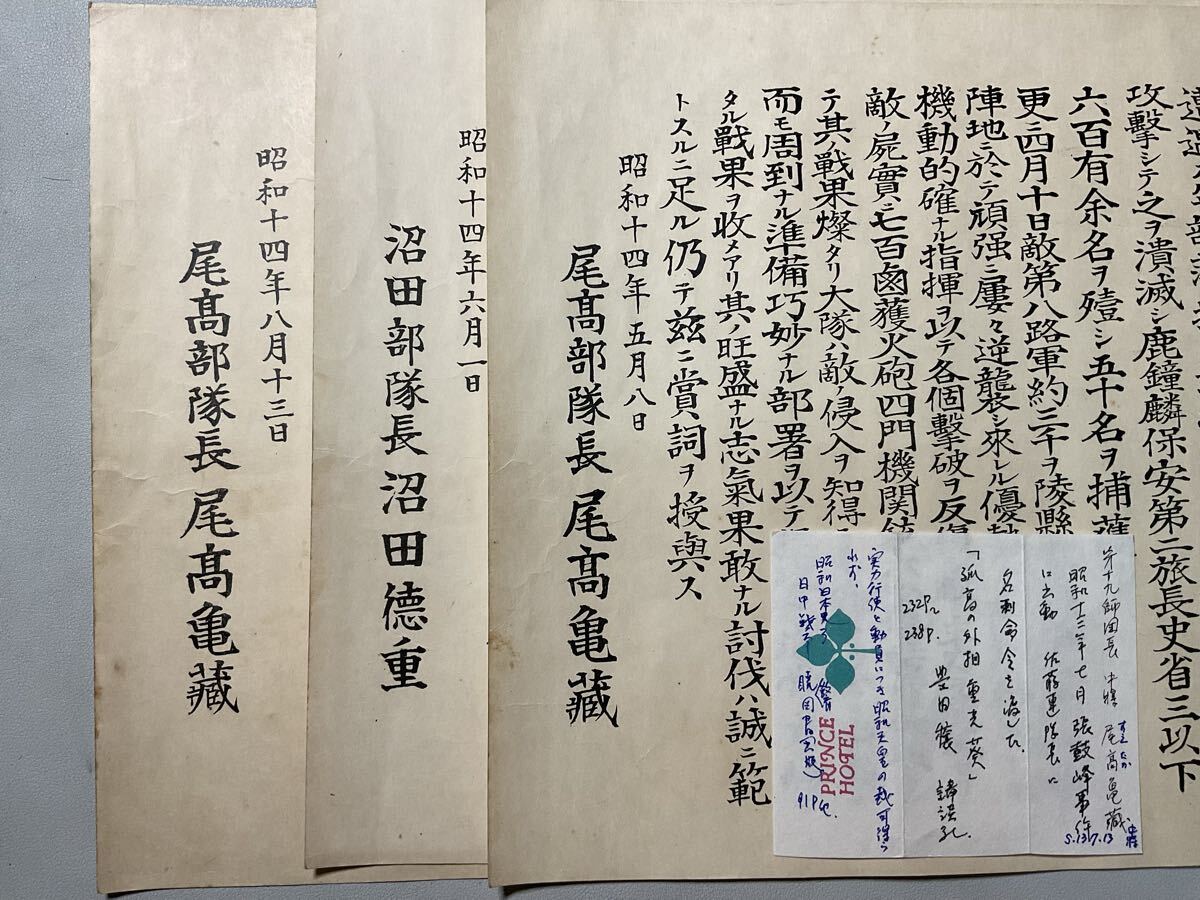 攻擊シテ之ヲ潰滅シ鹿鐘麟保安第二旅長史省三以下
六百有余名ヲ殪シ五十名ヲ捕
更ニ四月十日敵第八路軍約三千ヲ陵縣
陣地ニ於テ頑强ニ屢々逆襲シ來レル優勢
機動的確ナル指揮ヲ以テ各個擊破ヲ反復
敵ノ屍實ニ七百鹵獲火砲四門機関銃
テ其ノ戰果燦タリ大隊ハ敵ノ侵入ヲ知得
而モ周到ナル準備巧妙ナル部署ヲ以テ
タル戰果ヲ收メアリ其ノ旺盛ナル志氣果敢ナル討伐ハ誠ニ範
トスルニ足ル仍テ茲ニ賞詞ヲ授與ス
昭和十四年五月八日
尾髙部隊長 尾髙亀藏
昭和十四年六月一日
沼田部隊長沼田德重
昭和十四年八月十三日
尾髙部隊長 尾髙亀藏
第十九師団長 中将 尾高亀蔵
すえたか
昭和十三年七月 張鼓峰事件
に出動 佐藤連隊長に
S.13.7.13
名刺命令を渡した。
「孤高の外相重光葵」
232P～
238P.
豊田穣 講談社.
実力行使と動員につき昭和天皇の裁可得ら
れず、
日中戦争
91P
PRINCE
HOTEL